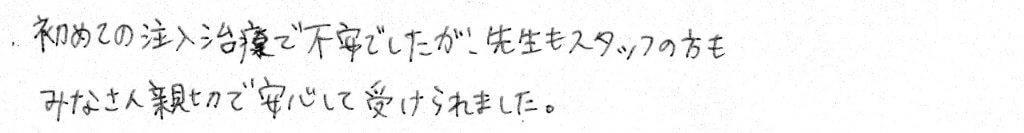 初めての注入治療で不安でしたが、先生もスタッフの方も
みなさん親切で安心して受けられました。